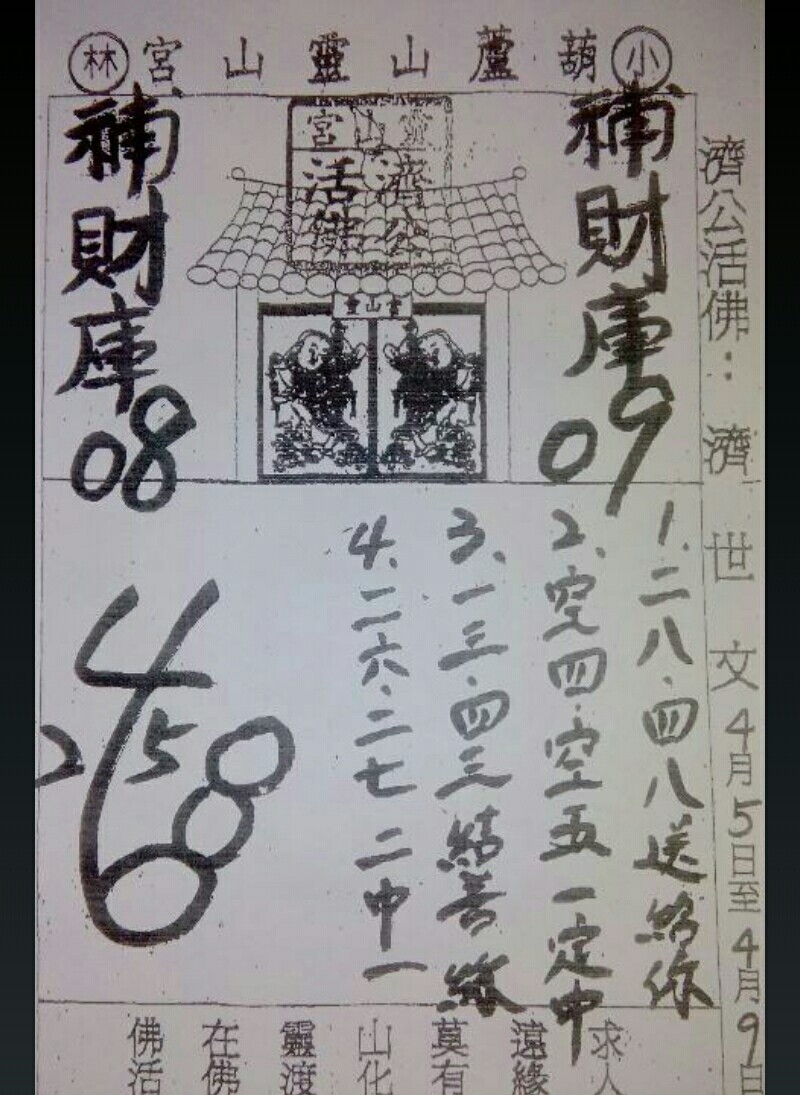 小葫蘆山靈山宮林
濟公活佛：濟世文4月5日至4月9日
補財庫09
靈山宮
濟公
活佛
靈山宮
補財庫08
1.二八.四八送給你
2、空四.空五一定中
3、一三.四三結善緣
4、二六.二七二中一
4
2
5
8
6
求人
遠緣
莫有
山化
靈渡
在佛
佛活